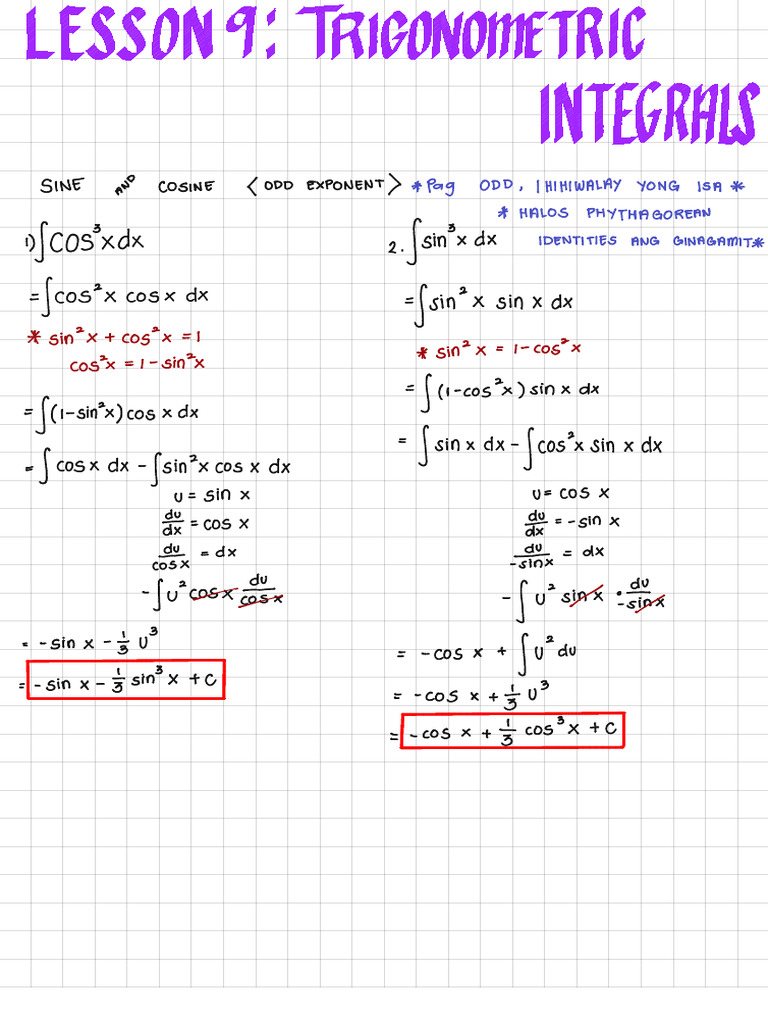 LESSON 9: TRIGONOMETRIC
INTEGRALS
SINE AND COSINE < ODD EXPONENT > * Pag ODD, IHIHIWALAY YONG ISA *
* HALOS PHYTHAGOREAN
IDENTITIES ANG GINAGAMIT *
1) ∫cos³x dx
= ∫cos²x cos x dx
* sin²x + cos²x = 1
cos²x = 1 - sin²x
= ∫(1-sin²x) cos x dx
= ∫cos x dx - ∫sin²x cos x dx
u = sin x
du/dx = cos x
du/cos x = dx
- ∫u² cos x du/cos x
= -sin x - 1/3 u³
= -sin x - 1/3 sin³x + C
2. ∫sin³x dx
= ∫sin²x sin x dx
* sin²x = 1-cos²x
= ∫(1-cos²x) sin x dx
= ∫sin x dx - ∫cos²x sin x dx
u = cos x
du/dx = -sin x
du/-sin x = dx
- ∫u² sin x • du/-sin x
= -cos x + ∫u² du
= -cos x + 1/3 u³
= -cos x + 1/3 cos³x + C